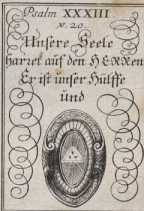 Psalm XXXIII
v. 20.
Unsere Seele
harret auf den HERRen
Er ist unser Hülffe
und